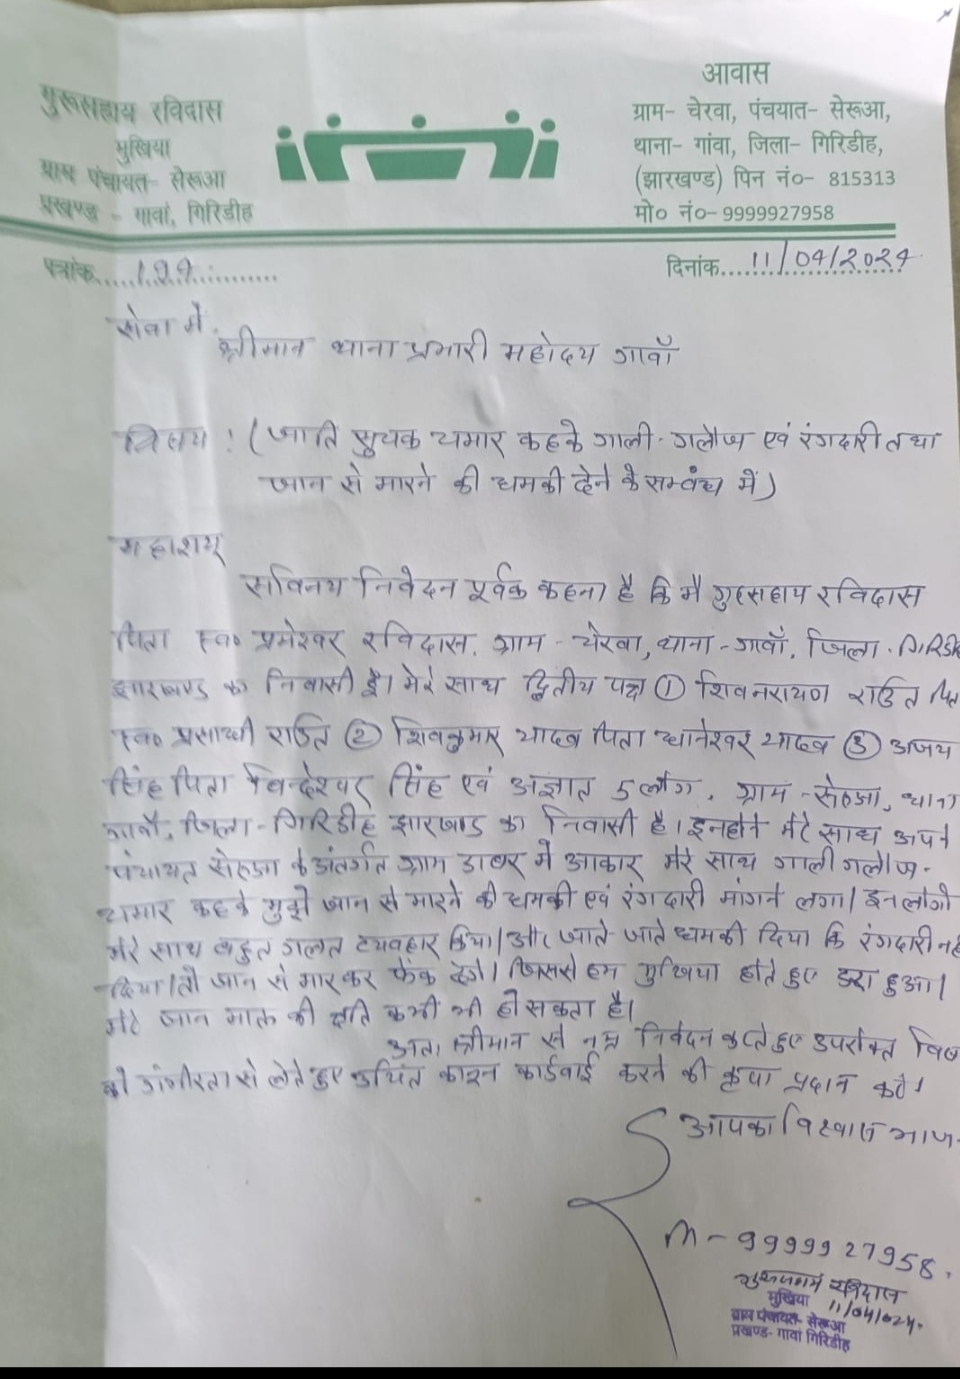 गुरूसहाय रविदास
मुखिया
ग्राम पंचायत- सेरूआ
प्रखण्ड - गावां, गिरिडीह
आवास
ग्राम- चेरवा, पंचायत- सेरूआ,
थाना- गांवा, जिला- गिरिडीह,
(झारखण्ड) पिन नं०- 815313
मो० नं०- 9999927958
पत्रांक.....199...........
दिनांक....11/04/2024
सेवा में,
श्रीमान थाना प्रभारी महोदय गावाँ
विषय : (जाति सुचक चमार कहके गाली-गलौज एवं रंगदारी तथा
जान से मारने की धमकी देने के सम्बंध में)
महाशय्
सविनय निवेदन पूर्वक कहना है कि मै गुरुसहाय रविदास
पिता स्व० प्रमेश्वर रविदास, ग्राम - चेरवा, थाना - गावाँ, जिला - गिरिडीह
झारखण्ड का निवासी हूँ। मेरे साथ द्वितीय पक्ष ① शिवनरायण राउत पिता
स्व० प्रसाधी राउत ② शिवकुमार यादव पिता धानेश्वर यादव ③ अजय
सिंह पिता विन्देश्वर सिंह एवं अज्ञात 5 लोग, ग्राम - सेरुआ, थाना
गावाँ, जिला - गिरिडीह झारखण्ड का निवासी है। इनहोने मेरे साथ अपने
पंचायत सेरुआ के अंतर्गत ग्राम डाबर में आकार मेरे साथ गाली गलौज -
चमार कहके मुझे जान से मारने की धमकी एवं रंगदारी मांगने लगा। इन लोगो
मेरे साथ बहुत गलत व्यवहार किया। और जाते-जाते धमकी दिया कि रंगदारी नही
दिया। तो जान से मार कर फेंक देंगे। जिससे हम मुखिया होते हुए डरा हुआ।
मेरे जान माल की क्षति कभी भी हो सकता है।
अतः श्रीमान से नम्र निवेदन करते हुए उपरोक्त विषय
को गंभीरता से लेते हुए उचित कानून कार्डवाई करने की कृपा प्रदान करे।
आपका विश्वास भाजन
M - 9999927958.
रविदास
11/04/024
मुखिया
ग्राम पंचायत- सेरूआ
प्रखण्ड- गावां गिरिडीह